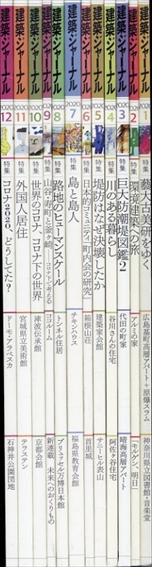 建築ジャーナル 1 特集 藝大古美研をゆく 広島基町高層アパート+原爆スラム 神奈川県立図書館・音楽堂
建築ジャーナル 2 特集 環境建築への旅 モルゲン、明日
建築ジャーナル 3 特集 巨大防潮堤図鑑2 アルミの家 晴海高層アパート
建築ジャーナル 4 特集 川のある暮らし 代田の町家 阿佐ヶ谷住宅
建築ジャーナル 5 特集 堤防はなぜ決壊したか 谷川さんの住宅
建築ジャーナル 6 特集 町内会の研究 建築家会館 首里城
建築ジャーナル 7 特集 島と島人 箱根山荘 福島県教育会館
建築ジャーナル 8 特集 路地のヒューマンスケール チキンハウス ブリュッセル万博日本館
建築ジャーナル 9 特集 山谷・寿町と釜ヶ崎 トンネル住居 新連載 未来へのおくりもの
建築ジャーナル 10 特集 世界のコロナ、コロナ下の世界 ココルーム 京都会館
建築ジャーナル 11 特集 外国人居住 津波伝承館 テラステン
建築ジャーナル 12 特集 コロナ2020、どうしてた? 宮城県立美術館 石神井公園団地